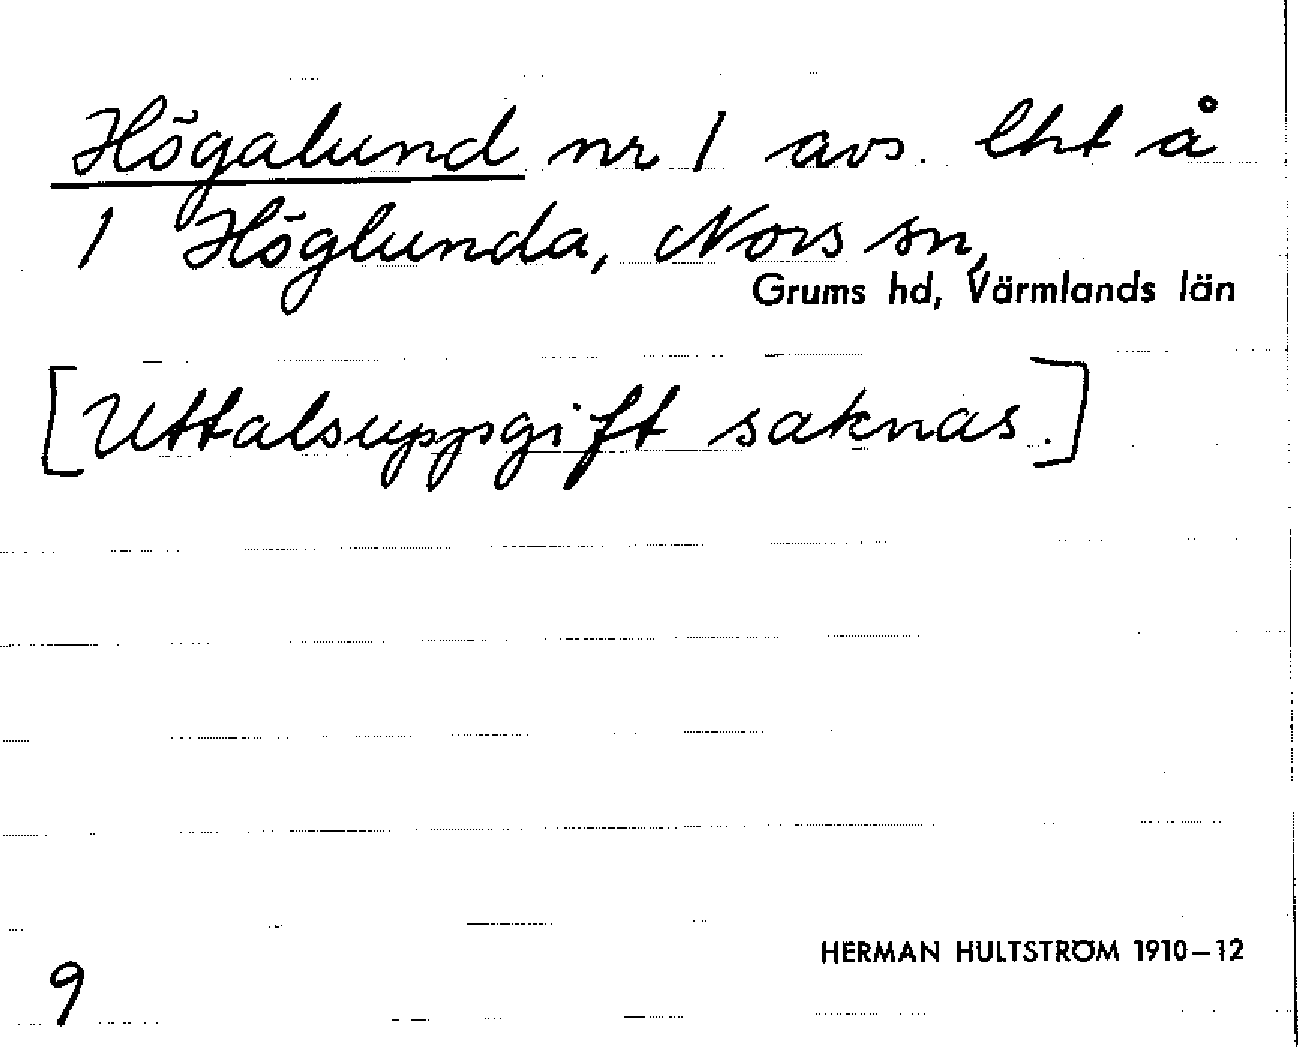 Högalund nr 1 avs. lht å
1 Höglunda, Nors sn,
Grums hd, Värmlands län
[Uttalsuppgift saknas.]
HERMAN HULTSTRÖM 1910–12
9